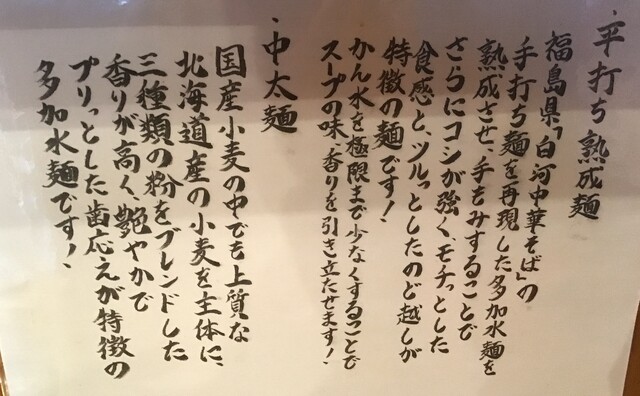 ・平打ち熟成麺
福島県「白河中華そば」の
手打ち麺を再現した多加水麺を
熟成させ、手もみすることで
さらにコシが強く、モチっとした
食感と、ツルっとしたのど越しが
特徴の麺です！
かん水を極限まで少なくすることで
スープの味・香りを引き立たせます！
・中太麺
国産小麦の中でも上質な
北海道産の小麦を主体に、
三種類の粉をブレンドした
香りが高く、艶やかで
プリっとした歯応えが特徴の
多加水麺です！